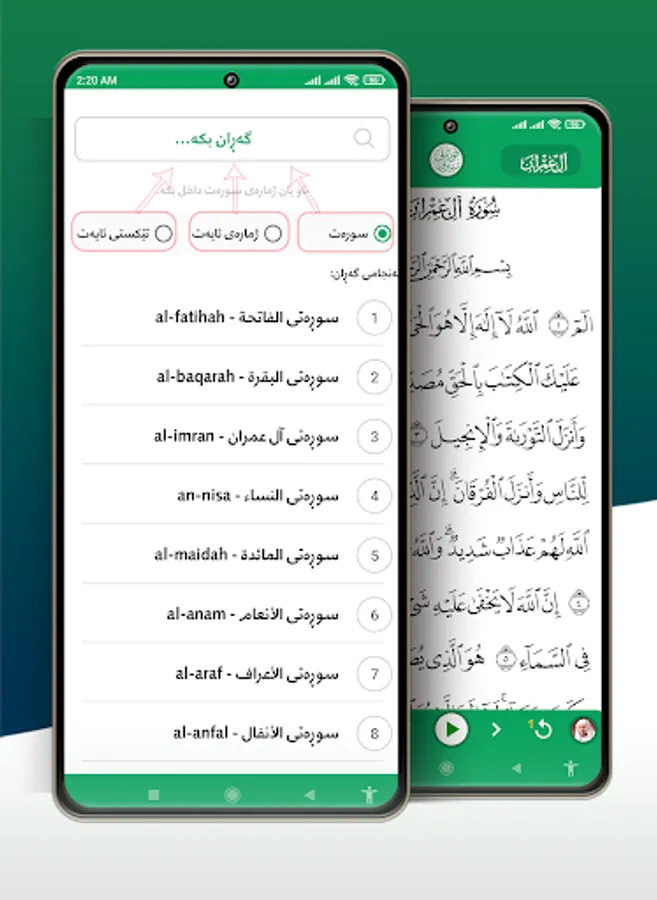 2:20 AM
گەڕان بکە...
ناو یان ژمارەی سورەت داخل بکە
سورەت
ژمارەی ئایەت
تێکستی ئایەت
ەنجامی گەڕان:
1 سورەتی الفاتحة - al-fatihah
2 سورەتی البقرة - al-baqarah
3 سورەتی آل عمران - al-imran
4 سورەتی النساء - an-nisa
5 سورەتی المائدة - al-maidah
6 سورەتی الأنعام - al-anam
7 سورەتی الأعراف - al-araf
8 سورەتی الأنفال - al-anfal
آل عمران
سُورَةُ آلِ عِمْرَانَ
بِسْمِ اللَّهِ الرَّحْمَٰنِ
الٓمٓ ١ ٱللَّهُ لَآ إِلَٰهَ إِلَّا هُوَ ٱلْحَىُّ
عَلَيْكَ ٱلْكِتَٰبَ بِٱلْحَقِّ
وَأَنزَلَ ٱلتَّوْرَىٰةَ وَٱلْإِنجِيلَ ٣
لِّلنَّاسِ وَأَنزَلَ ٱلْفُرْقَانَ ۗ إِنَّ
ٱللَّهِ لَهُمْ عَذَابٌ شَدِيدٌ ۗ وَٱللَّهُ
٤ إِنَّ ٱللَّهَ لَا يَخْفَىٰ عَلَيْهِ
فِى ٱلسَّمَآءِ ٥ هُوَ ٱلَّذِى
1